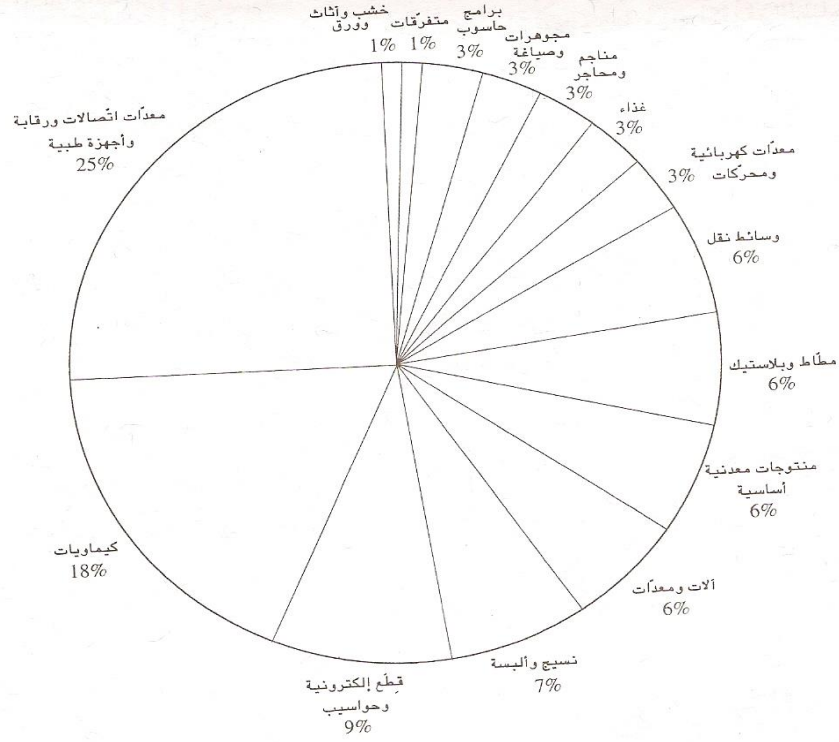 خشب وأثاث
وورق
1%
متفرّقات
1%
برامج
حاسوب
3%
مجوهرات
وصياغة
3%
مناجم
ومحاجر
3%
غذاء
3%
معدّات كهربائية
ومحرّكات 3%
وسائط نقل
6%
مطّاط وبلاستيك
6%
منتوجات معدنية
أساسية
6%
آلات ومعدّات
6%
نسيج وألبسة
7%
قِطَع إلكترونية
وحواسيب
9%
كيماويات
18%
معدّات اتّصالات ورقابة
وأجهزة طبية
25%